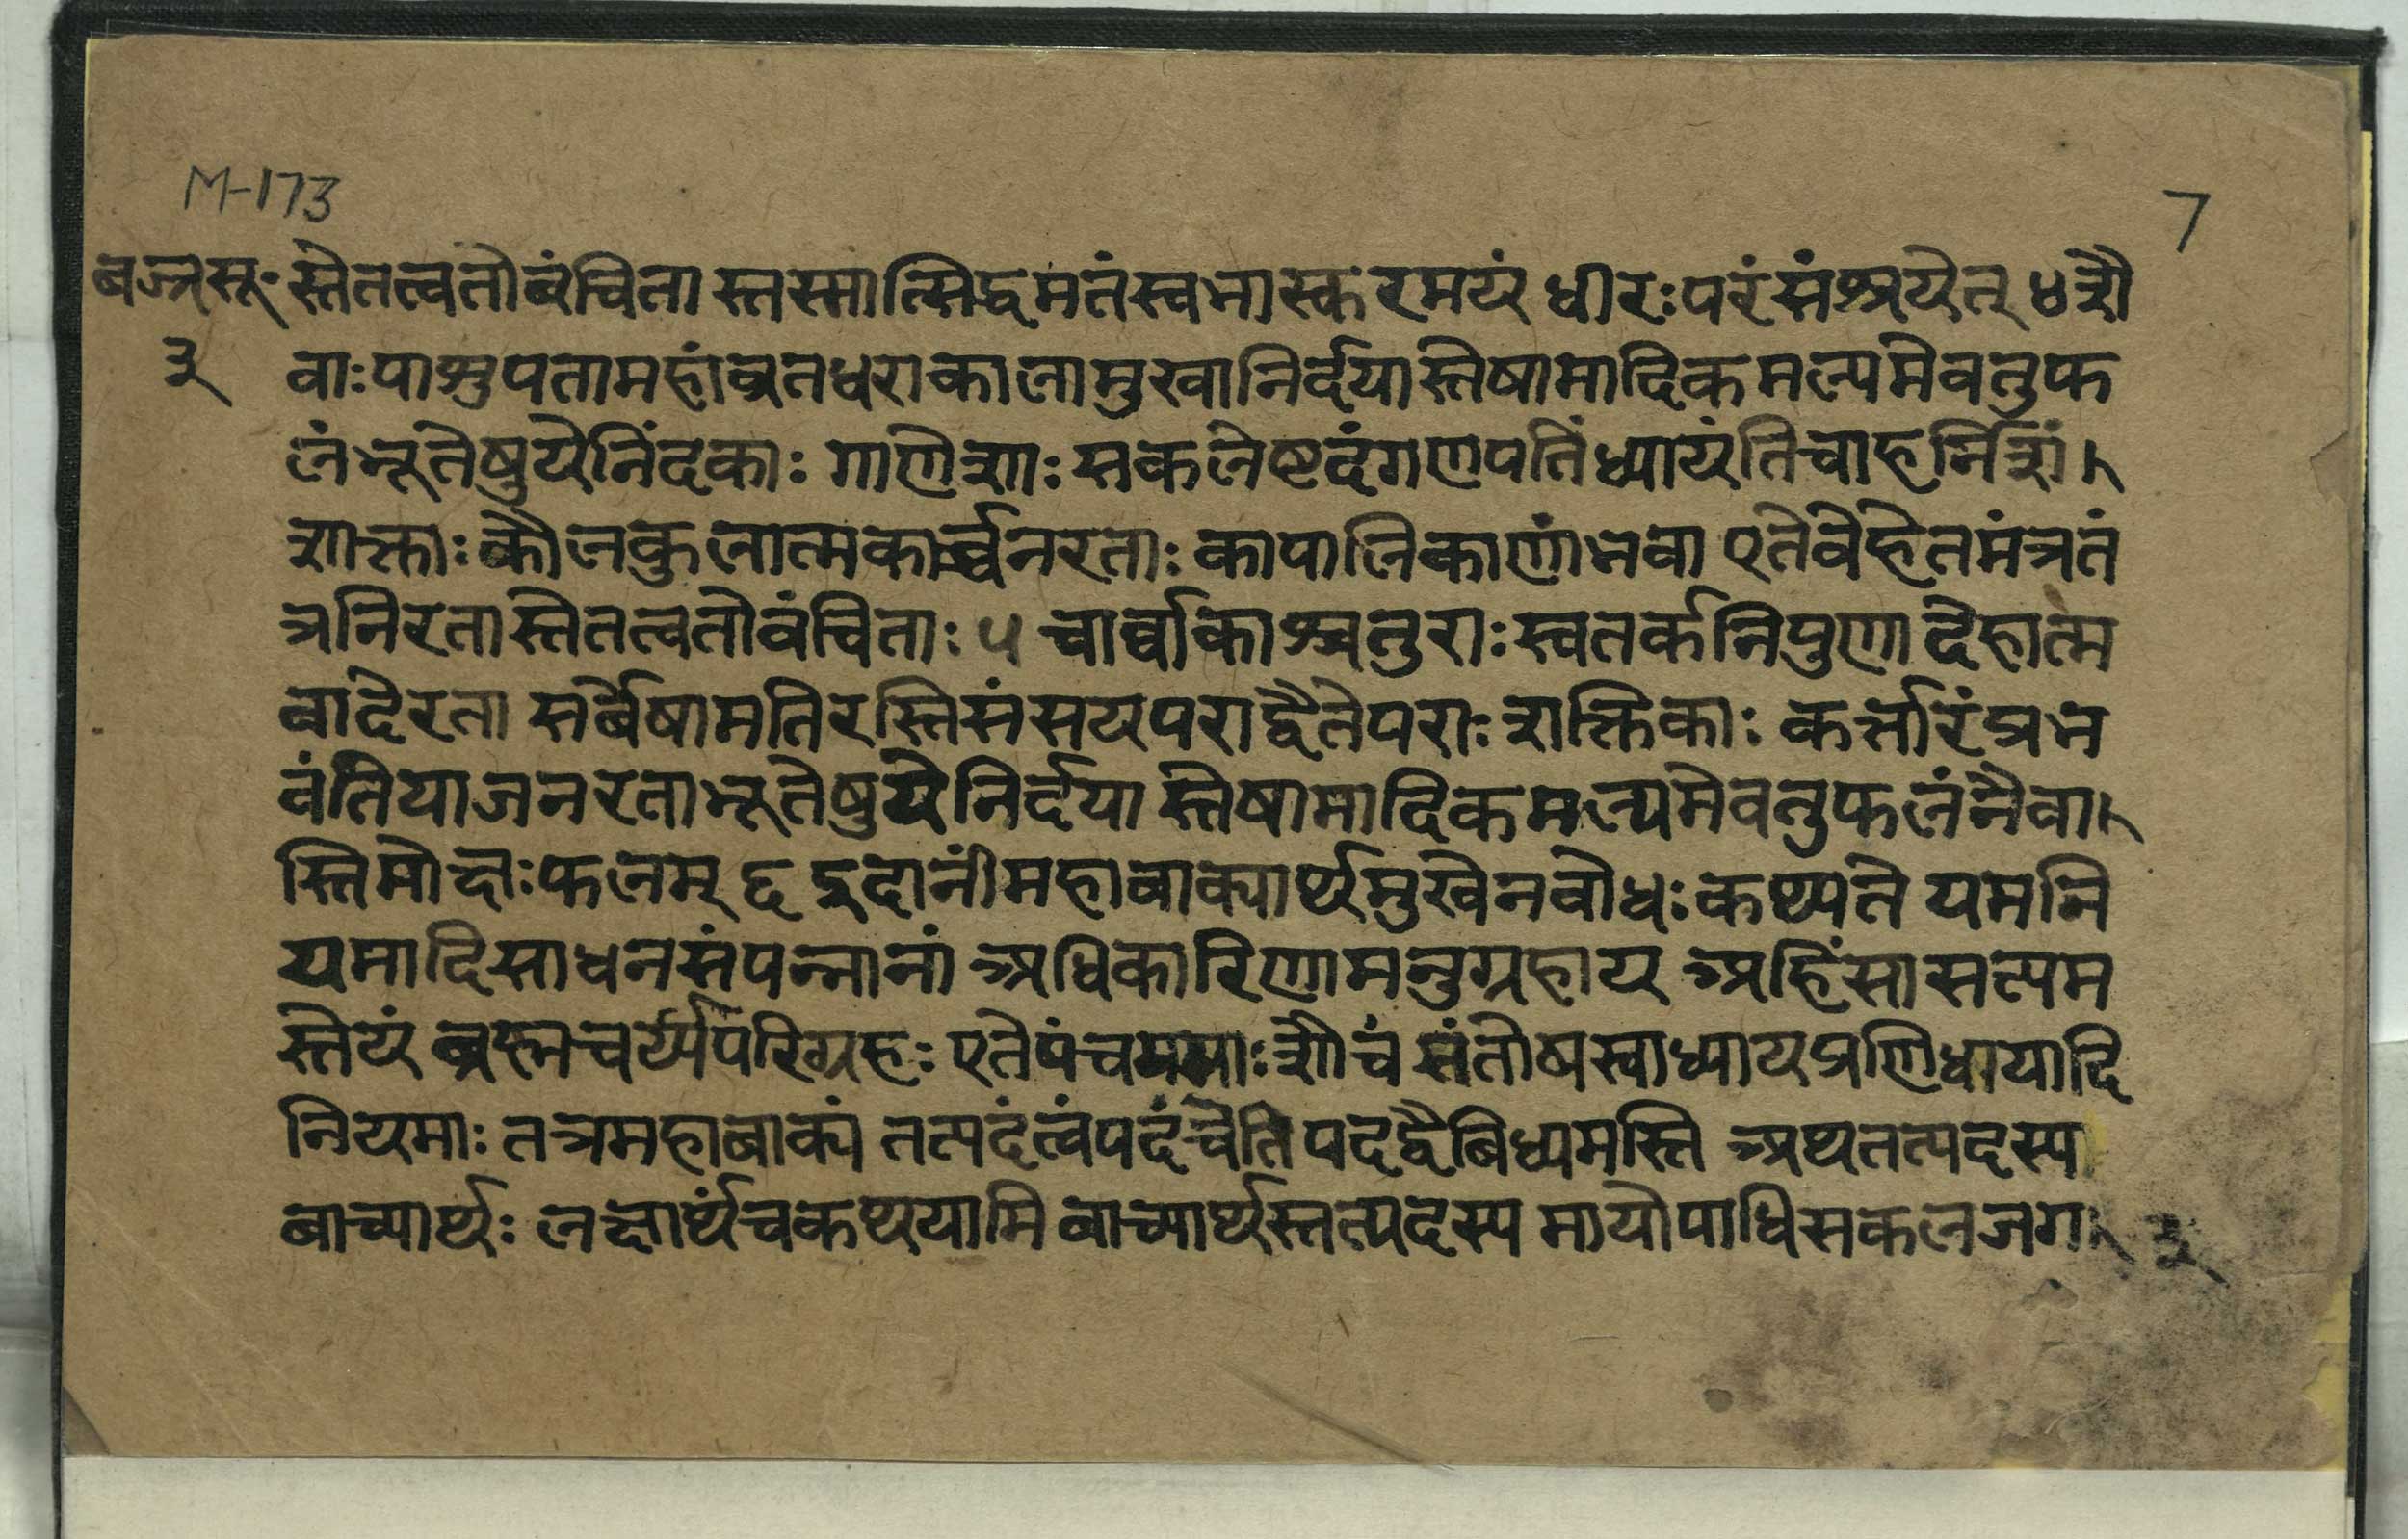 M-173
7
बज्रसूः स्तेतत्वतोबंचिता स्तस्मात्सिद्धमतंस्वभास्करमयं धीरःपरंसंश्रयेत् ४ शै
३ वाःपाशुपतामहांव्रतधराकालामुखानिर्दयास्तेषामादिकमल्पमेवतुफ
लंभूतेषुयेनिंदकाः गाणेशाः सकलेष्टदंगणपतिंध्यायंतिचाहर्निशां।
शाक्ताःकौलकुलात्मकार्च्चनरताः कापालिकाणांभवा एतेवेहेतमंत्रतं
त्रनिरतास्तेतत्वतोवंचिताः ५ चार्व्वाकाश्चतुराःस्वतर्कनिपुणादेहात्म
वादेरता सर्बेषामतिरस्तिसंसयपराद्वैतेपराःशक्तिकाः कर्त्तारंप्रभ
वंतियाजनरताभूतेषुयेनिर्दया स्तेषामादिकमल्पमेवतुफलंनैवा।
स्तिमोक्षःफलम् ६ इदानींमहाबाक्यार्थमुखेनवोधःकथ्यते यमनि
यमादिसाधनसंपन्नानां अधिकारिणामनुग्रहाय अहिंसासत्यम
स्तेयं ब्रह्मचर्य्यपरिग्रहः एतेपंचयमाःशौचं संतोषस्वाध्यायप्रणिधायादि
नियमाः तत्रमहाबाक्यं तत्पदंत्वंपदंचेति पदद्वैबिध्यमस्ति अथतत्पदस्य
बाच्यार्थः लक्षार्थंचकथयामि बाच्यार्थस्तत्पदस्य मायोपाधिसकलजग। ३